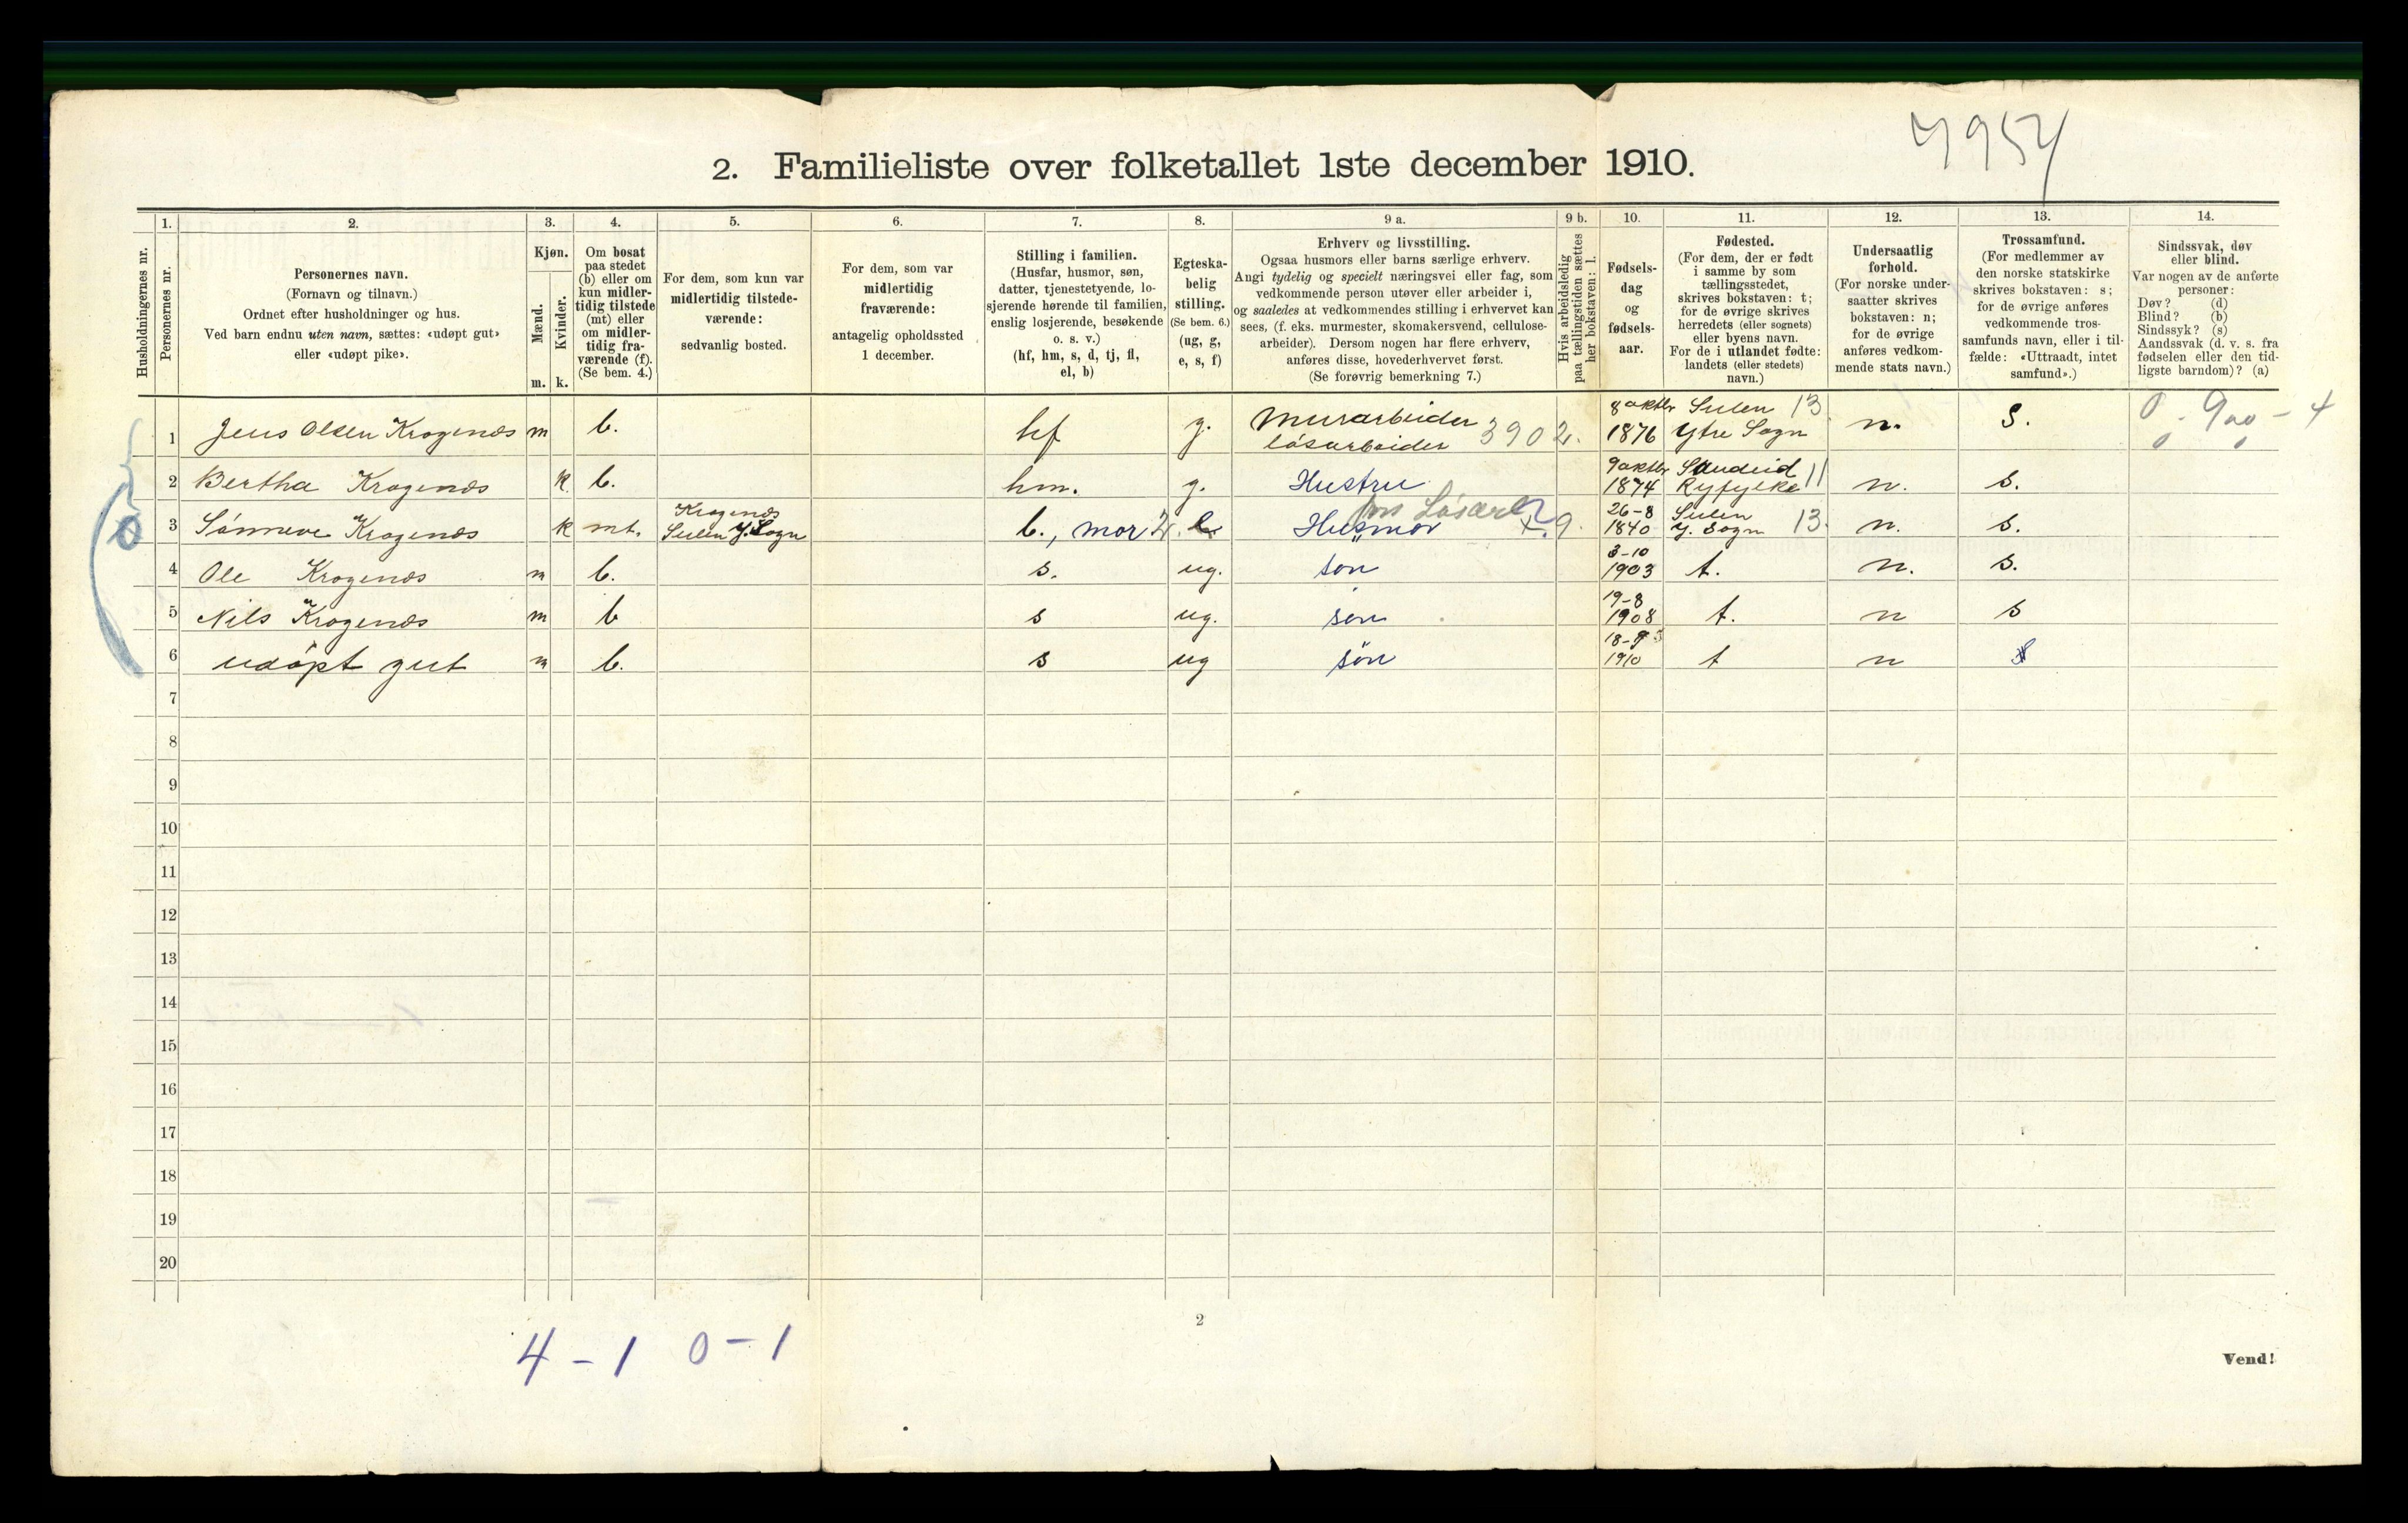 4954
2. Familieliste over folketallet 1ste december 1910.
Husholdningernes nr.
1. Personernes nr.
2. Personernes navn.
(Fornavn og tilnavn.)
Ordnet efter husholdninger og hus.
Ved barn endnu uten navn, sættes: «udøpt gut»
eller «udøpt pike».
3. Kjøn.
Mænd. Kvinder.
m. k.
4. Om bosat
paa stedet
(b) eller om
kun midler-
tidig tilstede
(mt) eller
om midler-
tidig fra-
værende (f).
(Se bem. 4.)
5. For dem, som kun var
midlertidig tilstede-
værende:
sedvanlig bosted.
6. For dem, som var
midlertidig
fraværende:
antagelig opholdssted
1 december.
7. Stilling i familien.
(Husfar, husmor, søn,
datter, tjenestetyende, lo-
sjerende hørende til familien,
enslig losjerende, besøkende
o. s. v.)
(hf, hm, s, d, tj, fl,
el, b)
8. Egteska-
belig
stilling.
(Se bem. 6.)
(ug, g,
e, s, f)
9 a. Erhverv og livsstilling.
Ogsaa husmors eller barns særlige erhverv.
Angi tydelig og specielt næringsvei eller fag, som
vedkommende person utøver eller arbeider i,
og saaledes at vedkommendes stilling i erhvervet kan
sees, (f. eks. murmester, skomakersvend, cellulose-
arbeider). Dersom nogen har flere erhverv,
anføres disse, hovederhvervet først.
(Se forøvrig bemerkning 7.)
9 b. Hvis arbeidsledig
paa tællingstiden sættes
her bokstaven: l.
10. Fødsels-
dag
og
fødsels-
aar.
11. Fødested.
(For dem, der er født
i samme by som
tællingsstedet,
skrives bokstaven: t;
for de øvrige skrives
herredets (eller sognets)
eller byens navn.
For de i utlandet fødte:
landets (eller stedets)
navn.)
12. Undersaatlig
forhold.
(For norske under-
saatter skrives
bokstaven: n;
for de øvrige
anføres vedkom-
mende stats navn.)
13. Trossamfund.
(For medlemmer av
den norske statskirke
skrives bokstaven: s;
for de øvrige anføres
vedkommende tros-
samfunds navn, eller i til-
fælde: «Uttraadt, intet
samfund».)
14. Sindssvak, døv
eller blind.
Var nogen av de anførte
personer:
Døv? (d)
Blind? (b)
Sindssyk? (s)
Aandssvak (d. v. s. fra
fødselen eller den tid-
ligste barndom)? (a)
1 Jens Olsen Krogenæs m b. hf g. Murarbeider løsarbeider 3902. 8 oktbr 1876 Sulen Ytre Sogn 13 n. s.
2 Bertha Krogenæs k. b. hm. g. Hustru 9 oktbr 1874 Sandeid Ryfylke 11 n. s.
3 Sønneve Krogenæs k mt. Krogenæs Sulen Y. Sogn b., mor Husmor 26-8 1840 Sulen Y. Sogn 13. n. s.
4 Ole Krogenæs m b. s. ug. søn 3-10 1903 t. n. s.
5 Nils Krogenæs m b s ug. søn 19-8 1908 t. n s
6 udøpt gut m b. s ug søn 1910 t n s
7
8
9
10
11
12
13
14
15
16
17
18
19
20
2
4 - 1 0 - 1
Vend!